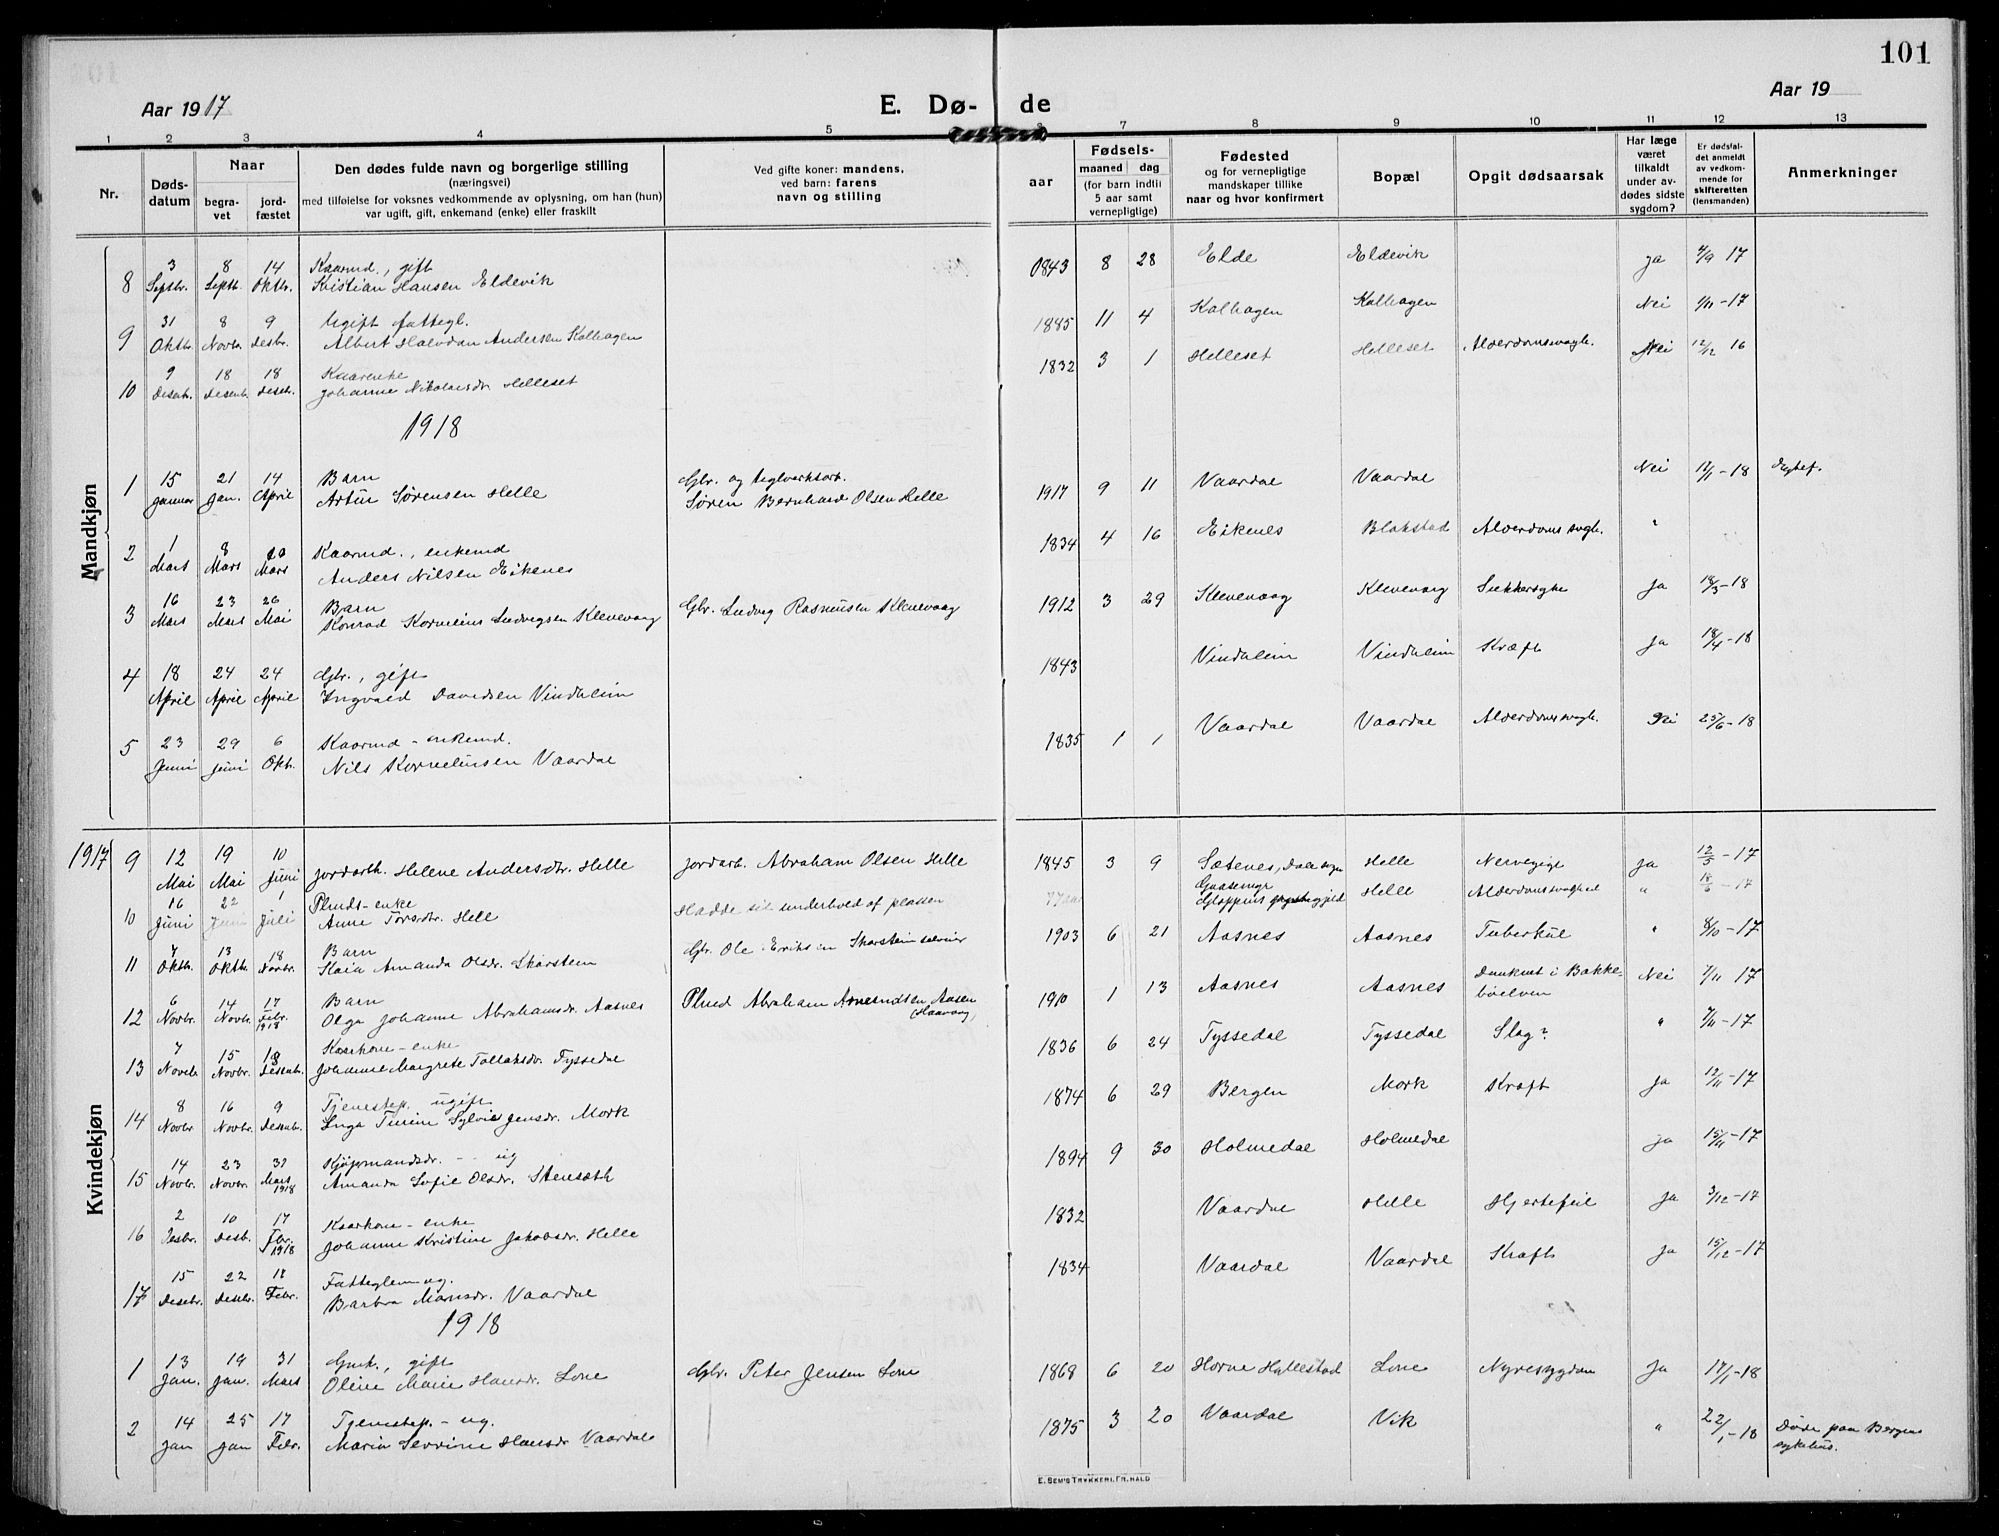 101
Aar 1917
E. Dø-
de
Aar 19
1 2 3 4 5 6 7 8 9 10 11 12 13
Nr.
Døds-
datum
Naar
begra-
vet
jord-
fæstet
Den dødes fulde navn og borgerlige stilling
(næringsvei)
med tilføielse for voksnes vedkommende av oplysning, om han (hun)
var ugift, gift, enkemand (enke) eller fraskilt
Ved gifte koner: mandens,
ved barn: farens
navn og stilling
aar
Fødsels-
maaned dag
(for barn indtil
5 aar samt
vernepligtige)
Fødested
og for vernepligtige
mandskaper tillike
naar og hvor konfirmert
Bopæl
Opgit dødsaarsak
Har læge
været
tilkaldt
under av-
dødes sidste
sygdom?
Er dødsfal-
det anmeldt
av vedkom-
mende for
skifteretten
(lensmanden)
Anmerkninger
Mandkjøn
3 8 14 Kaarmd., gift
8 Septbr. Septb. Oktbr. Kristian Hansen Eldevik 1843 8 28 Elde Eldevik ja 4/9 17
31 8 9 Ugift fattegl.
9 Oktbr. Novbr. Desbr. Albert Halvdan Andersen Kalhagen 1885 11 4 Kalhagen Kalhagen Nei 1/11-17
9 18 18 Kaarenke
10 Desbr. Desenb. Desbr. Johanne Nikolaisdr. Helleset 1832 3 1 Helleset Helleset Alderdomssvagh. Nei 12/12 16
1918
15 21 14 Barn Gbr. og teglverksarb.
1 Januar Jan. April Artur Sørensen Helle Søren Bernhard Olsen Helle 1917 9 11 Vaardal Vaardal Nei 17/1-18
1 8 20 Kaarmd., enkemd
2 Mars Mars Mars Anders Nilsen Eikenes 1834 4 16 Eikenes Blakstad Alderdoms svagh. "
16 23 26 Barn Gbr. Ludvig Rasmussen Klevevaag
3 Mars Mars Mai Konrad Kornelius Ludvigsen Klevevaag 1912 3 29 Klevevaag Klevevaag Sukkersyke Ja 18/3-18
18 24 24 Gbr., gift
4 April April April Ingvald Davidsen Vindheim 1843 Vindheim Vindheim Kræft Ja 18/4-18
23 29 6 Kaarmd - enkemd.
5 Juni Juni Okt. Nils Korneliussen Vaardal 1835 1 1 Vaardal Vaardal Alderdomssvagh. Nei 25/6-18
Kvindekjøn
1917
9 12 19 10 Jordarb. Helene Andersdr. Helle Jordarb. Abraham Olsen Helle 1845 3 9 Sætenes, Dale sogn Helle Ja 12/5-17
Mai Mai Juni
16 22 1 Plmds-enke
10 Juni Juni Juli Anne Torsdr. Hell Hadde sit underhold af plassen 77 aar Gaasemyr Gloppens Helle Alderdomssvaghed " 18/6-17
7 13 18 Barn
11 Oktb. Oktb. Novbr. Kaia Amanda Olsdr. Skarstein Gbr. Ole Eriksen Skarstein 1903 6 21 Aasnes Aasnes Tuberkul " 8/10-17
6 14 17 Barn
12 Novbr. Novbr. Febr. 1918 Olga Johanne Abrahamsdr. Aasnes Plmd Abraham Aasen 1910 1 13 Aasnes Aasnes Druknet i Bakke-
bøelven Nei 7/11 17
7 15 18 Kaarkone - enke
13 Noveb. Novbr. Desenb. Johanne Margrete Tollaksdr. Tyssedal 1836 6 24 Tyssedal Tyssedal Slag? " 7/11-17
8 16 9 Tjenestep. ugift
14 Novbr. Novbr. Desenb. Inga Turine Sylvia Jensdr. Mork 1874 6 29 Bergen Mork Kræft Ja 12/11-17
14 23 31 Kjøpmandsdr. - - ug
15 Novbr. Novbr. Mars 1918 Amanda Sofie Olsdr. Stensæth 1894 9 30 Holmedal Holmedal ja 15/11-17
2 10 17 Kaarkone - enke
16 Desbr. Desb. Febr. 1918 Johanne Kristine Jakobsdr. Helle 1832 Vaardal Helle Hjertefeil Ja 3/12-17
15 22 18 Fatteglem ug.
17 Desebr. Desebr. Febr. Barbra Monsdr. Vaardal 1834 Vaardal Vaardal Kræft Ja 15/12-17
1918
13 19 31 Gmk., gift
1 Jan. Jan. Mars Oline Marie Hansdr. Lone Gbr. Peter Jensen Lone 1868 6 20 Horne Hallestad Lone Nyresygdom Ja 17/1-18
14 25 17 Tjenestep. - ug.
2 Jan Jan Febr. Maria Sevrine Hansdr Vaardal 1875 3 20 Vaardal Vik " 22/1-18 Døde paa Bergens
sykehus.
E. SEM'S TRYKKERI, FR.HALD